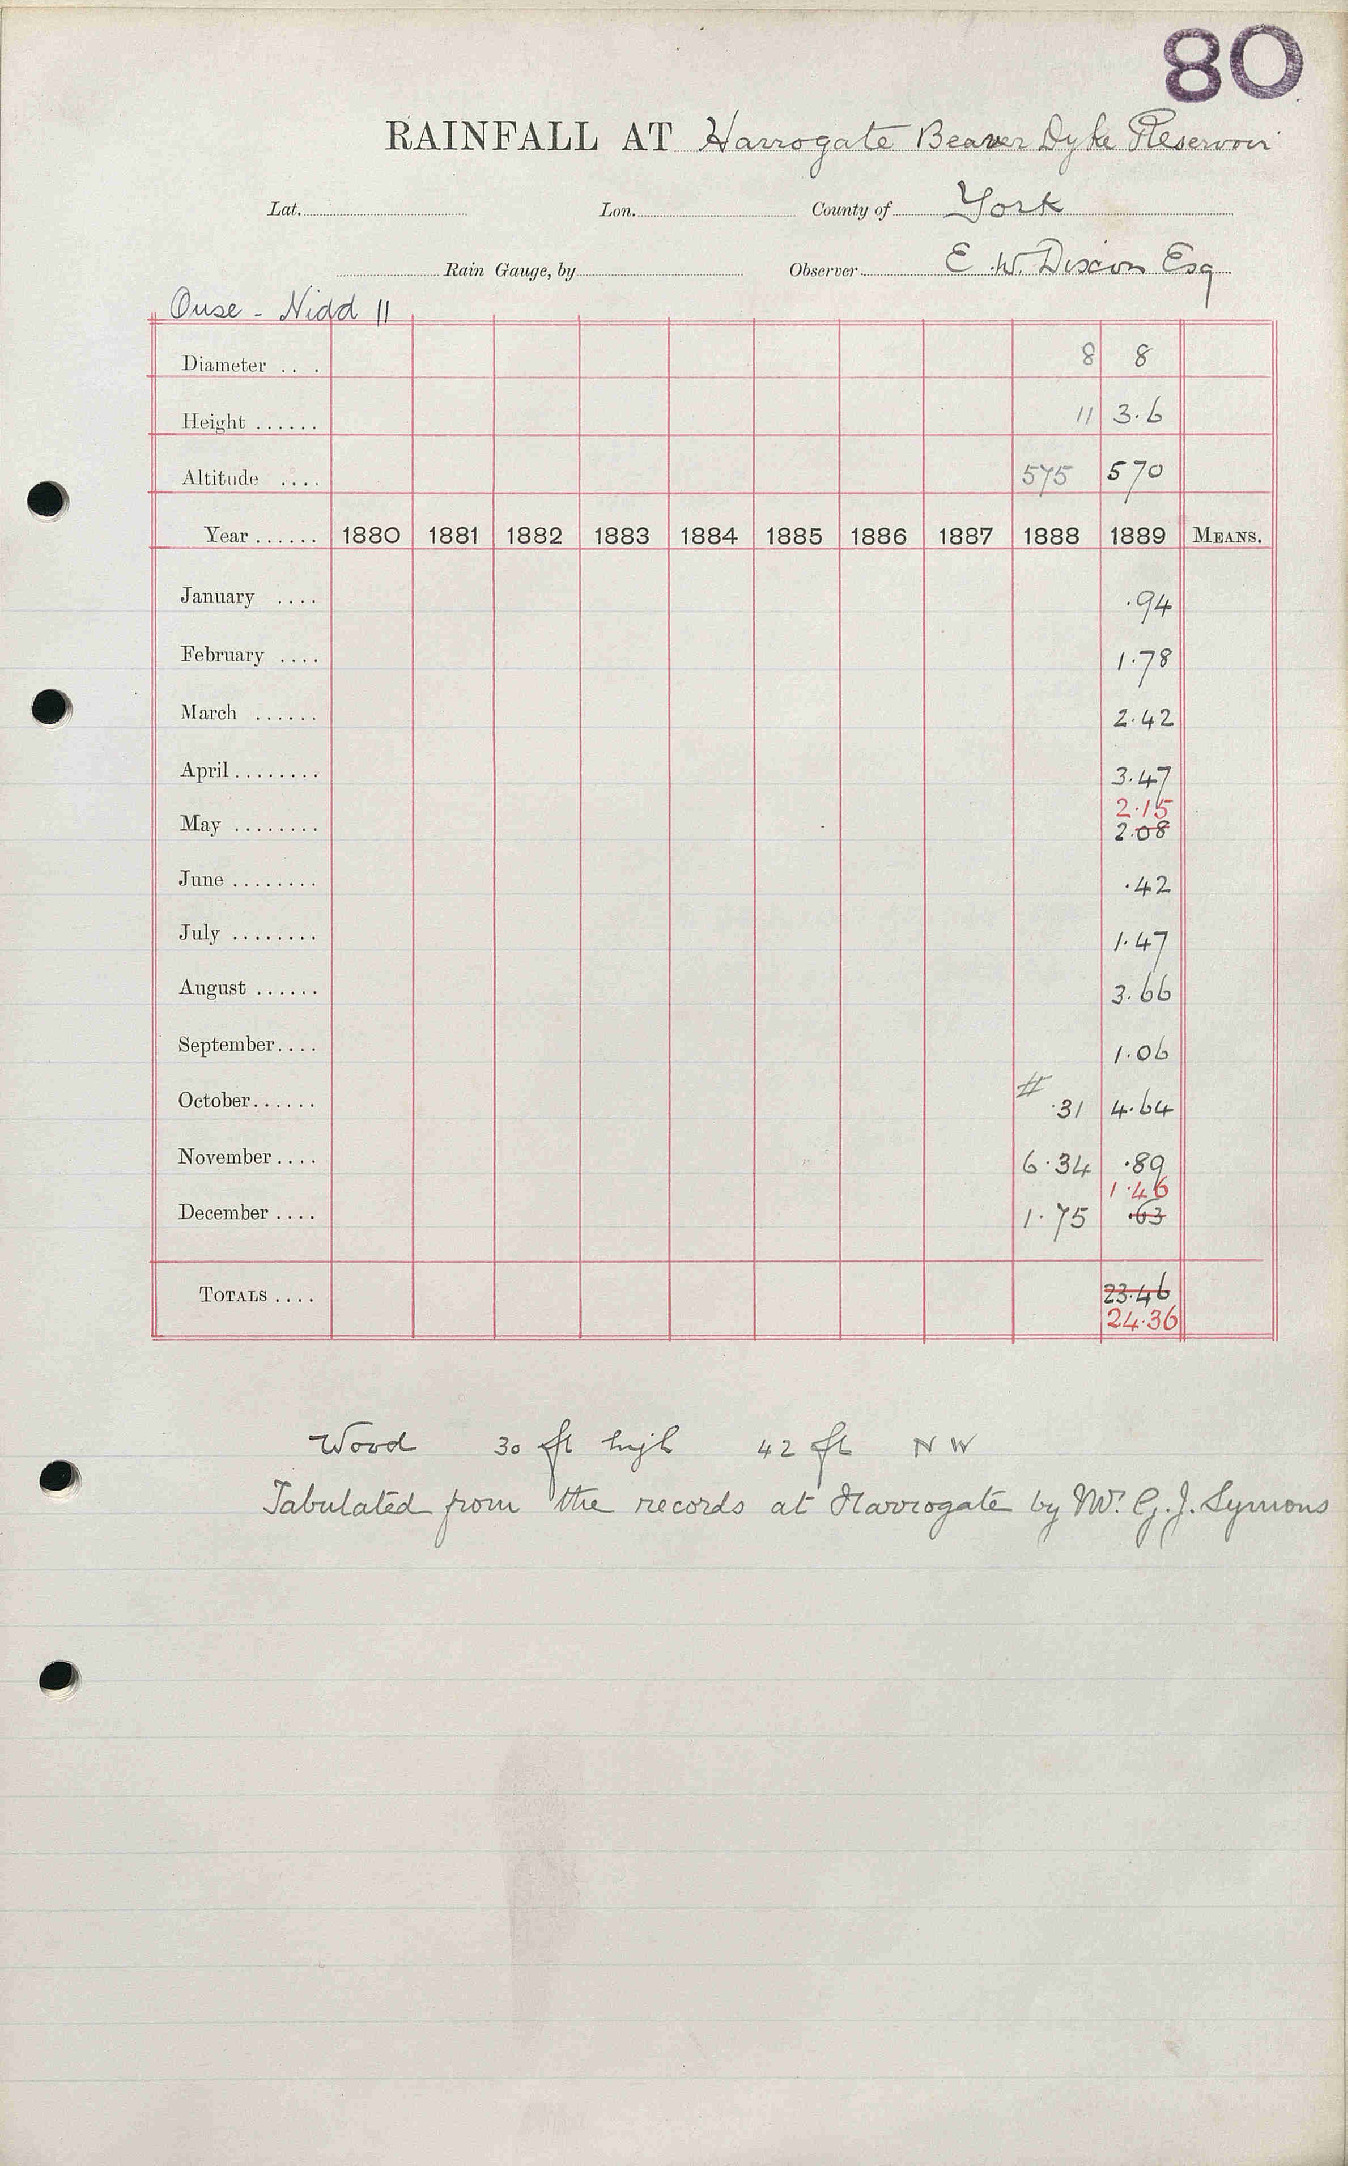 80
RAINFALL AT Harrogate Beaver Dyke Reservoir
Lat. Lon. County of York
Rain Gauge, by Observer E. W. Dixon Esq
Ouse - Nidd 11
Diameter ... 8 8
Height ...... 11 3.6
Altitude .... 575 570
Year ...... 1880 1881 1882 1883 1884 1885 1886 1887 1888 1889 MEANS.
January .... .94
February .... 1.78
March ...... 2.42
April ........ 3.47
2.15
May ........ 2.08
June ........ .42
July ........ 1.47
August ...... 3.66
September.... 1.06
#
October...... .31 4.64
November .... 6.34 .89
1.46
December .... 1.75 .63
TOTALS .... 23.46
24.36
Wood 30 ft high 42 ft N W
Tabulated from the records at Harrogate by Mr. G. J. Symons